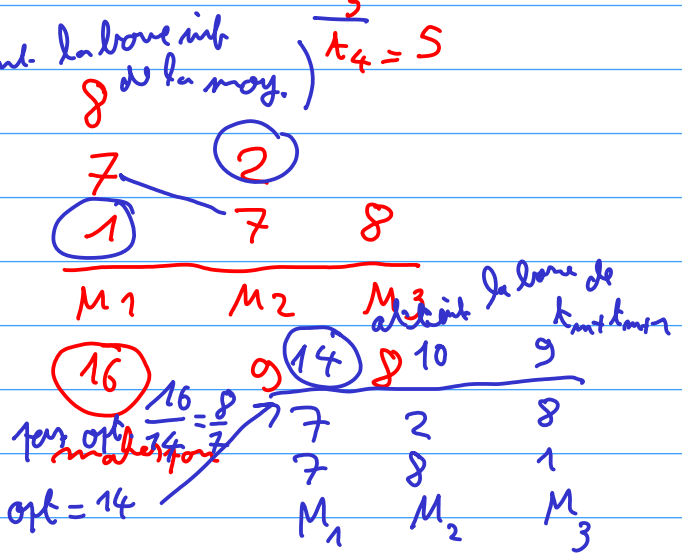 la borne inf
de la moy. )
t4 = 5
8
7 2
1 7 8
M1 M2 M3
atteint la borne de
tm + tm+1
16 9 14 8 10 9
pas opt. 16/14 = 8/7
7 2 8
7 8 1
opt = 14
M1 M2 M3